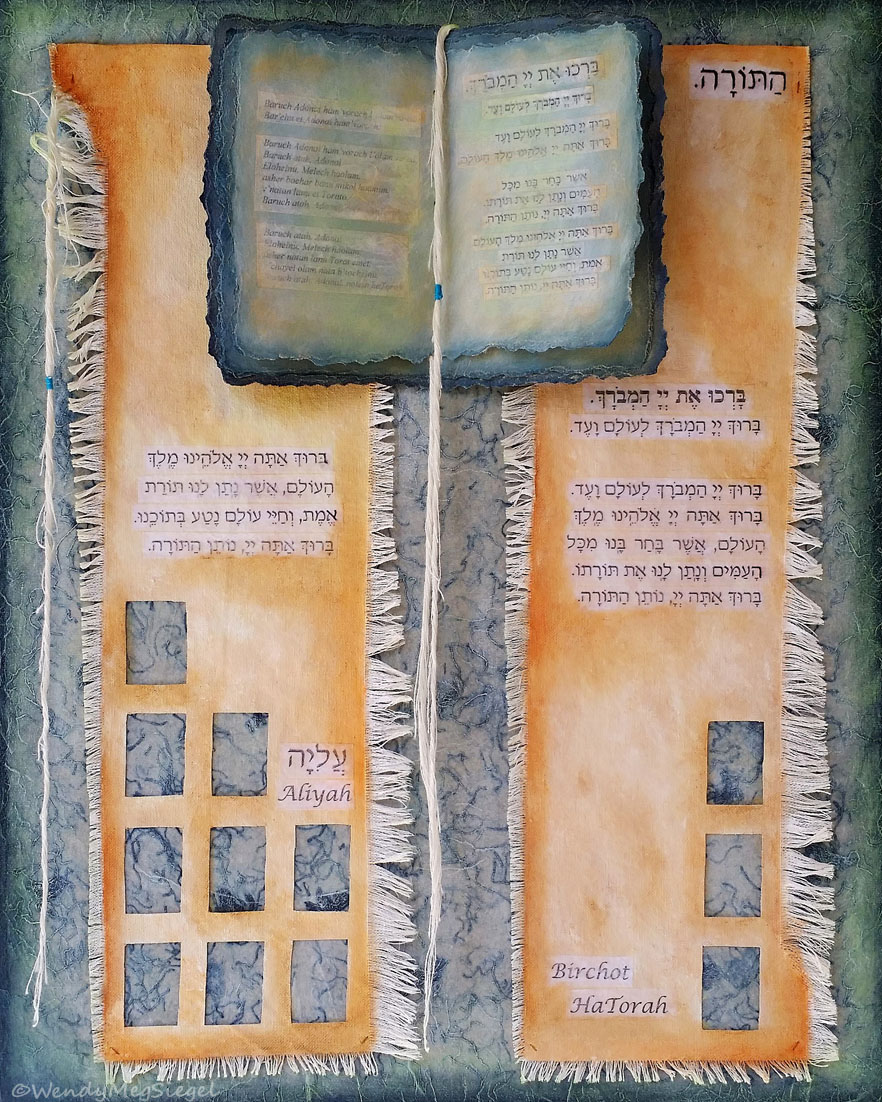 Baruch Adonai ham'vorach
Baruch Adonai ham'vorach l'olam
Baruch atah, Adonai
Eloheinu, Melech haolam,
asher bachar banu mikol haamim,
v'natan lanu et Torato.
Baruch atah, Adonai
Baruch atah, Adonai
Eloheinu, Melech haolam,
asher natan lanu Torat emet,
בָּרְכוּ אֶת יְיָ הַמְבֹרָךְ.
בָּרוּךְ יְיָ הַמְבֹרָךְ לְעוֹלָם וָעֶד.
בָּרוּךְ יְיָ הַמְבֹרָךְ לְעוֹלָם וָעֶד
בָּרוּךְ אַתָּה יְיָ אֱלֹהֵינוּ מֶלֶךְ הָעוֹלָם,
אֲשֶׁר בָּחַר בָּנוּ מִכָּל
הָעַמִּים וְנָתַן לָנוּ אֶת תּוֹרָתוֹ.
בָּרוּךְ אַתָּה יְיָ, נוֹתֵן הַתּוֹרָה.
בָּרוּךְ אַתָּה יְיָ אֱלֹהֵינוּ מֶלֶךְ הָעוֹלָם
אֲשֶׁר נָתַן לָנוּ תּוֹרַת
אֱמֶת, וְחַיֵּי עוֹלָם נָטַע בְּתוֹכֵנוּ
בָּרוּךְ אַתָּה יְיָ, נוֹתֵן הַתּוֹרָה.
הַתּוֹרָה.
בָּרְכוּ אֶת יְיָ הַמְבֹרָךְ.
בָּרוּךְ יְיָ הַמְבֹרָךְ לְעוֹלָם וָעֶד.
בָּרוּךְ יְיָ הַמְבֹרָךְ לְעוֹלָם וָעֶד.
בָּרוּךְ אַתָּה יְיָ אֱלֹהֵינוּ מֶלֶךְ
הָעוֹלָם, אֲשֶׁר בָּחַר בָּנוּ מִכָּל
הָעַמִּים וְנָתַן לָנוּ אֶת תּוֹרָתוֹ.
בָּרוּךְ אַתָּה יְיָ, נוֹתֵן הַתּוֹרָה.
בָּרוּךְ אַתָּה יְיָ אֱלֹהֵינוּ מֶלֶךְ
הָעוֹלָם, אֲשֶׁר נָתַן לָנוּ תּוֹרַת
אֱמֶת, וְחַיֵּי עוֹלָם נָטַע בְּתוֹכֵנוּ.
בָּרוּךְ אַתָּה יְיָ, נוֹתֵן הַתּוֹרָה.
עֲלִיָה
Aliyah
Birchot
HaTorah
©WendyMegSiegel